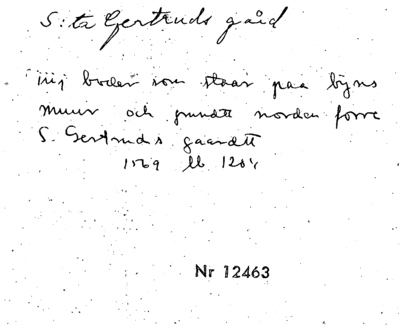 S:ta Gertruds gård
iiij boder som staar paa byns
muur och grundtt norden forre
S. Gertruds gaardtt
1569 lb
Nr 12463